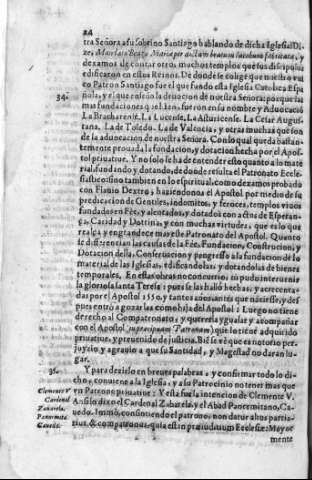 24
tra Señora a su sobrino Santiago hablando de dicha Iglesia: Di-
ze, Mariæ per dictum beatum Iacobum fabricata, y
dexamos de contar otros, muchos templos que sus discipulos
edificaron en estos Reinos. De donde se colige que nuestro vni-
co Patron Santiago fue el que fundo esta Iglesia Catolica Espa-
34.
ñola, y el que enseñò la deuocion de nuestra Señora: porque las
mas fundaciones que hizo, fueron en su nombre y Aduocació
La Bracharense. La Lucense, La Asturicense. La Cesar Augus-
tana. La de Toledo. La de Valencia, y otras muchas que son
de la aduocacion de nuestra Señora. Con lo qual queda bastan-
temente prouada la fundacion, y dotacion hecha por el Apos-
tol priuatiue. Y no solo se ha de entender esto quanto a lo mate
rial, fundando, y dotandole, de donde resulta el Patronato Ecle-
siastico: sino tambien en lo espiritual, como dexamos probado
con Flauio Dextro: haziendonos el Apostol por medio de su
predicacion de Gentiles, indomitos, y feroces, templos viuos
fundados en Fèe, y alentados, y dotados con actos de Esperan-
ça, Caridad y Dotrina, y con muchas virtudes, que es lo que
realça y engrandece mas este Patronato del Apostol. Quanto
se diferencian las causas de la Fèe, Fundacion, Construcion, y
Dotacion della, Conseruacion y progresso a la fundacion de lo
material de las Iglesias, edificandolas, y dotandolas de bienes
temporales. En estas obras no concurriò, ni pudo interuenir
la gloriosa santa Teresa: pues se las hallò hechas, y acrecenta-
das por el Apostol 1550. y tantos años antes que naciesse, y des-
pues entrò a gozar las como hija del Apostol: Luego no tiene
derecho al Compatronato, y quererla ygualar y acompañar
con el Apostol que lo tiene adquirido
priuatiue, y preuenido de justicia. Bien se vè que es notorio per-
juyzio y agrauio a que su Santidad, y Magestad no daran lu-
gar.
35.
Y para dezirlo en breues palabras, y confirmar todo lo di-
cho, conuiene a la Iglesia, y a su Patrocinio no tener mas que
Clemente V
vn Patrono priuatiue: Y esta fue la intencion de Clemente V.
Cardenal
Zabarela.
Assi lo dize el Cardenal Zabarela, y el Abad Panormitano, Ca-
Panormita.
uedo. Immò, consintiendo el patrono, non datur altus patria-
tius, & compatronus, quia est in præiuditium Ecclesiæ: Mayor
mente